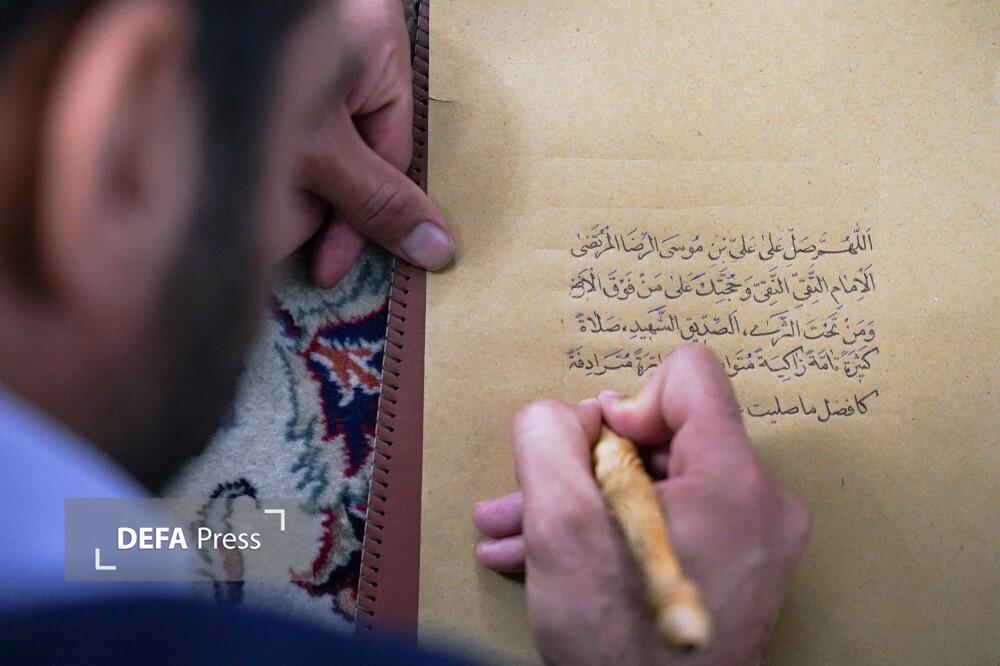 اَللّٰهُمَّ صَلِّ عَلىٰ عَلِيِّ بْنِ مُوسَى الرِّضَا الْمُرْتَضىٰ
اَلْاِمَامِ التَّقِيِّ النَّقِيِّ وَحُجَّتِكَ عَلىٰ مَنْ فَوْقَ الْاَرْضِ
وَمَنْ تَحْتَ الثَّرىٰ، اَلصِّدِّيقِ الشَّهِيدِ، صَلَاةً
كَثِيرَةً تَامَّةً زَاكِيَةً مُتَرَادِفَةً
كافضل ماصليت
DEFA Press